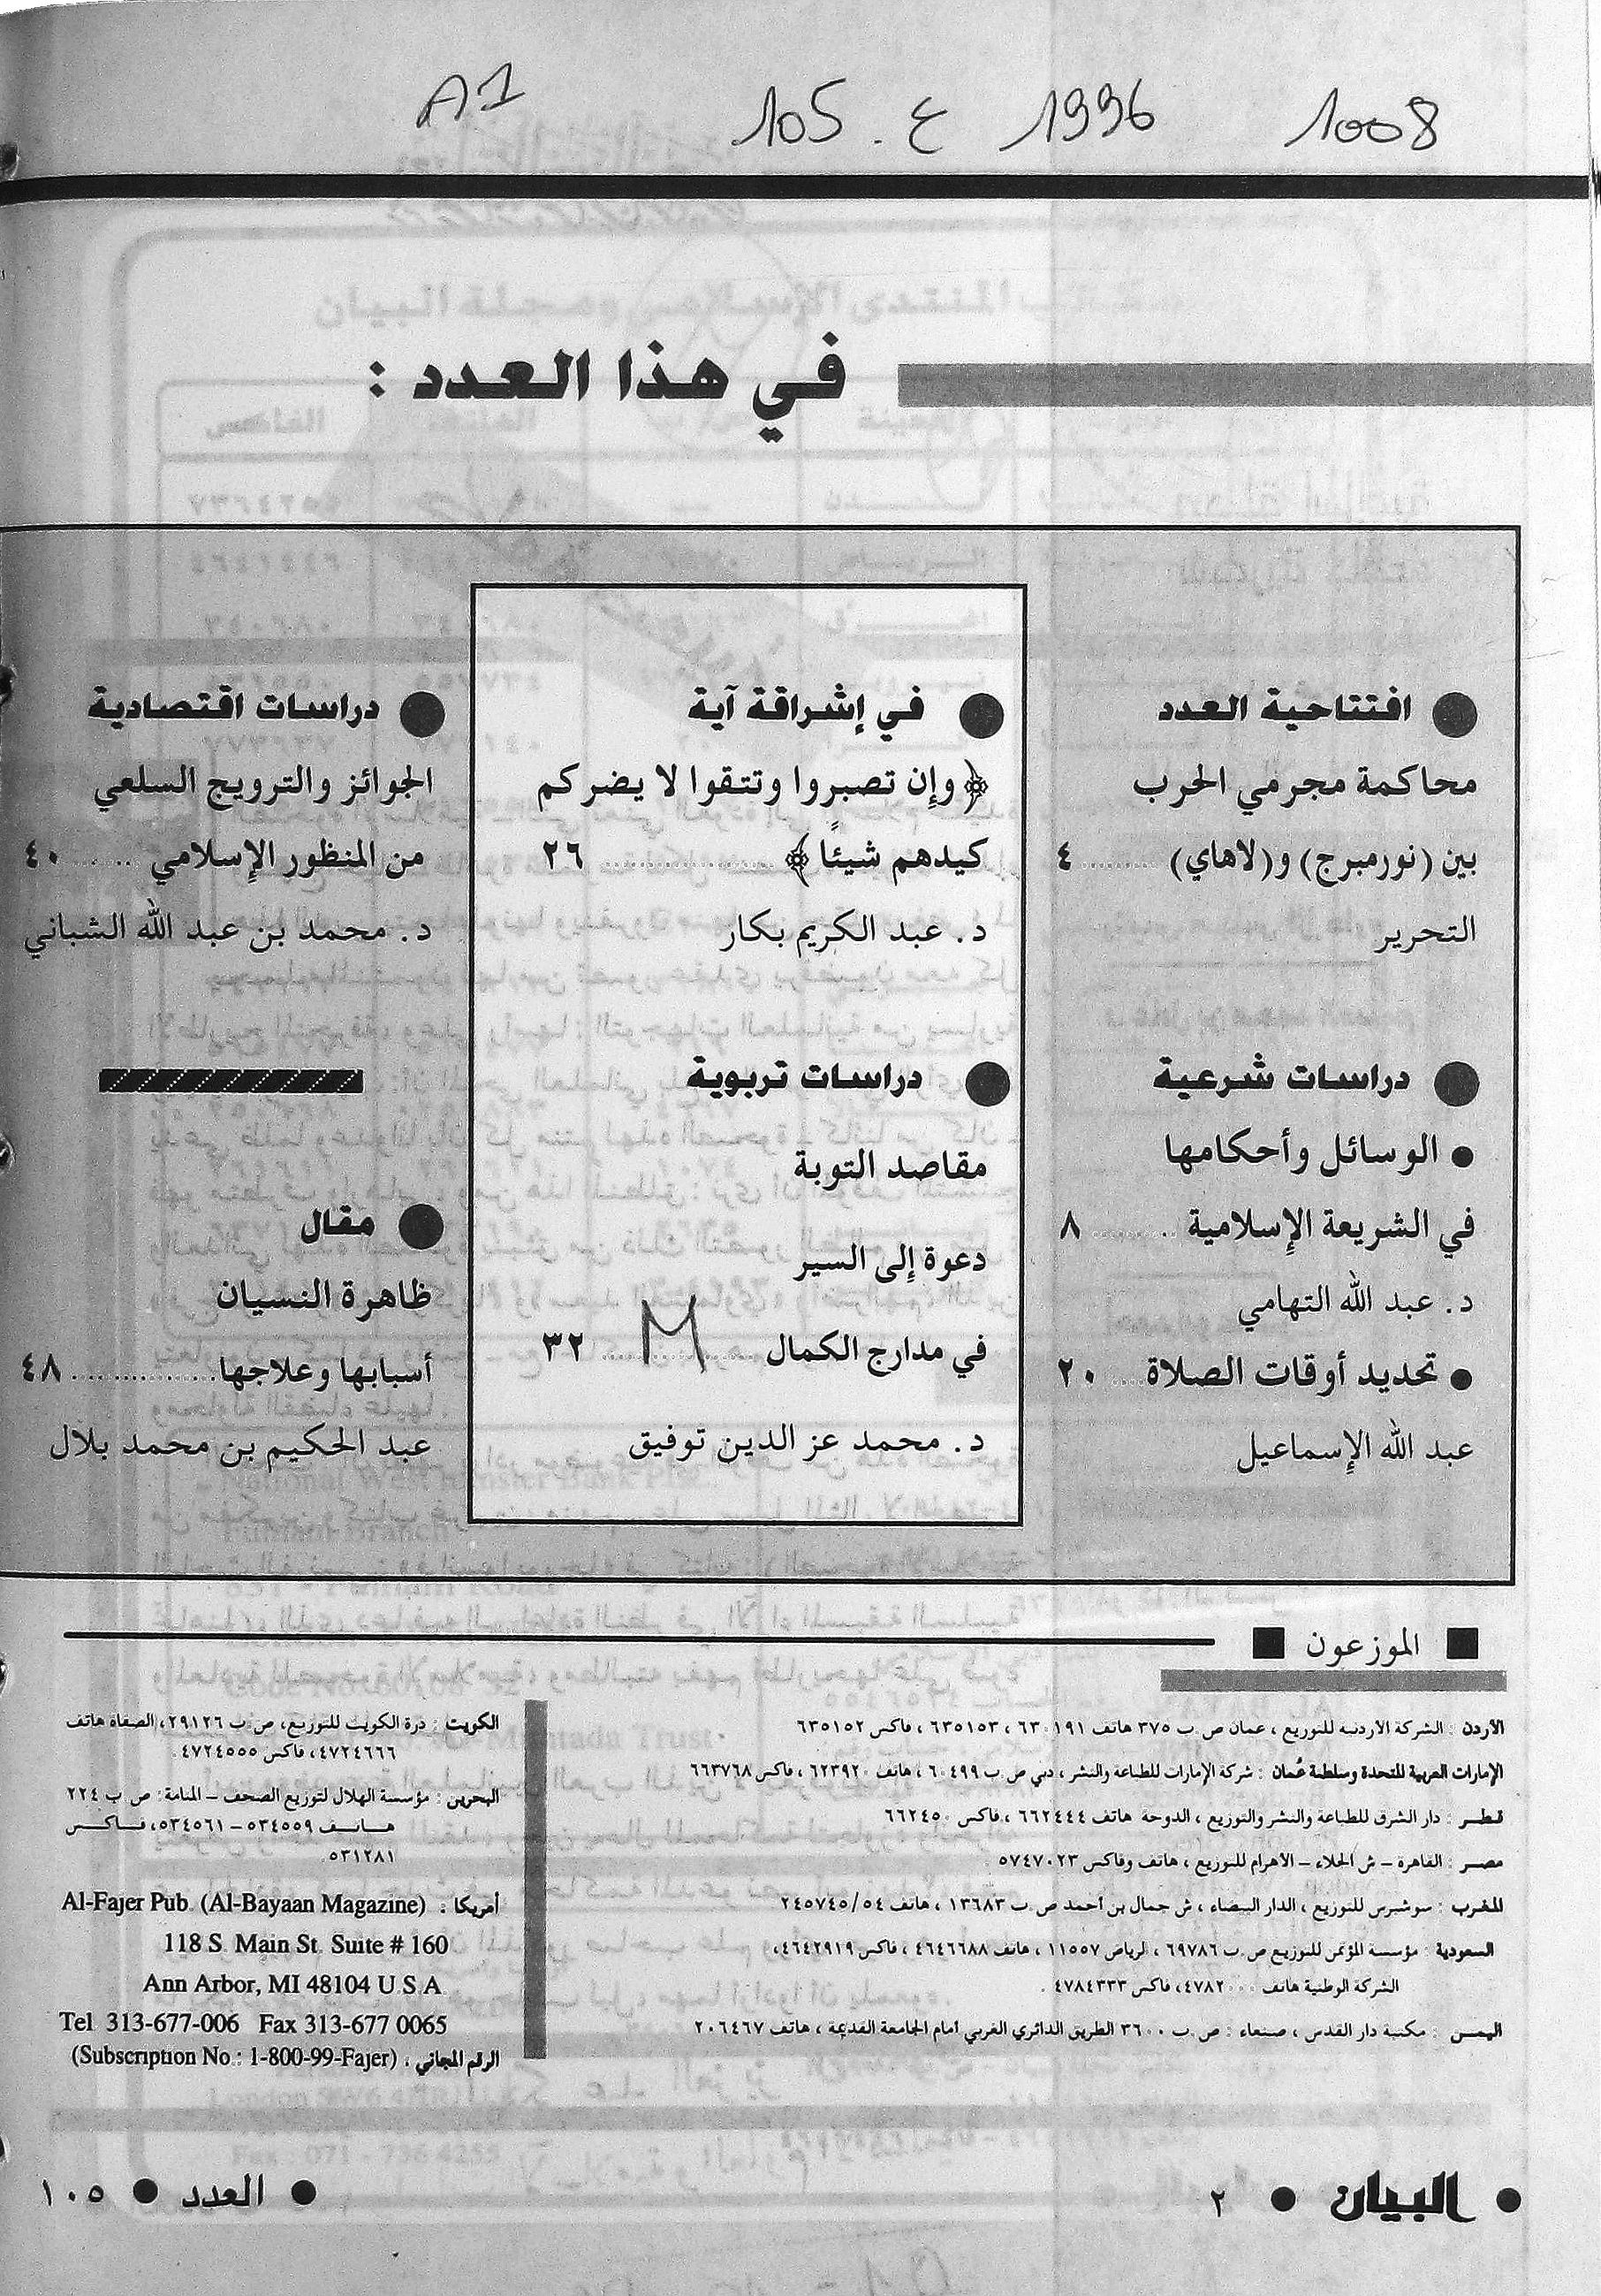 A1 105 . ع 1996 1008
في هذا العدد :
● افتتاحية العدد
محاكمة مجرمي الحرب
بين (نورمبرج) و(لاهاي) ......... ٤
التحرير
● دراسات شرعية
● الوسائل وأحكامها
في الشريعة الإسلامية ........... ٨
د. عبد الله التهامي
● تحديد أوقات الصلاة .... ٢٠
عبد الله الإسماعيل
● في إشراقة آية
﴿ وإن تصبروا وتتقوا لا يضركم
كيدهم شيئًا ﴾ ..................... ٢٦
د. عبد الكريم بكار
● دراسات تربوية
مقاصد التوبة
دعوة إلى السير
في مدارج الكمال .................. ٣٢
M
د. محمد عز الدين توفيق
● دراسات اقتصادية
الجوائز والترويج السلعي
من المنظور الإسلامي ........ ٤٠
د. محمد بن عبد الله الشباني
● مقال
ظاهرة النسيان
أسبابها وعلاجها ................. ٤٨
عبد الحكيم بن محمد بلال
■ الموزعون ■
الأردن : الشركة الأردنية للتوزيع ، عمان ص.ب ٣٧٥ هاتف ٦٣٠١٩١ ، ٦٣٥١٥٣ ، فاكس ٦٣٥١٥٢
الإمارات العربية المتحدة وسلطنة عُمان : شركة الإمارات للطباعة والنشر ، دبي ص.ب ٦٠٤٩٩ ، هاتف ٦٢٣٩٢٠ ، فاكس ٦٦٣٧٦٨
قطـر : دار الشرق للطباعة والنشر والتوزيع ، الدوحة هاتف ٦٦٢٤٤٤ ، فاكس ٦٦٢٤٥٠
مصـر : القاهرة – ش الجلاء – الأهرام للتوزيع ، هاتف وفاكس ٥٧٤٧٠٢٣
المغرب : سوشبرس للتوزيع ، الدار البيضاء ، ش جمال بن أحمد ص.ب ١٣٦٨٣ ، هاتف ٢٤٥٧٤٥/٥٤
السعودية : مؤسسة المؤتمن للتوزيع ص.ب ٦٩٧٨٦ ، الرياض ١١٥٥٧ ، هاتف ٤٦٤٦٦٨٨ ، فاكس ٤٦٤٢٩١٩،
الشركة الوطنية هاتف ٤٧٨٢٠٠٠، فاكس ٤٧٨٤٣٣٣ .
اليمـن : مكتبة دار القدس ، صنعاء : ص.ب ٣٦٠٠ الطريق الدائري الغربي أمام الجامعة القديمة ، هاتف ٢٠٦٤٦٧
الكويت : درة الكويت للتوزيع، ص.ب ٢٩١٢٦، الصفاة هاتف
٤٧٢٤٦٦٦، فاكس ٤٧٢٤٥٥٥ .
البحرين : مؤسسة الهلال لتوزيع الصحف – المنامة: ص.ب ٢٢٤
هـاتـف ٥٣٤٥٥٩ – ٥٣٤٥٦١، فـاكـس
٥٣١٢٨١
أمريكا : Al-Fajer Pub. (Al-Bayaan Magazine)
118 S. Main St. Suite # 160
Ann Arbor, MI 48104 U.S.A
Tel 313-677-006 Fax 313-677 0065
الرقم المجاني : (Subscription No.: 1-800-99-Fajer)
● البيان ● ٢
● العدد ● ١٠٥